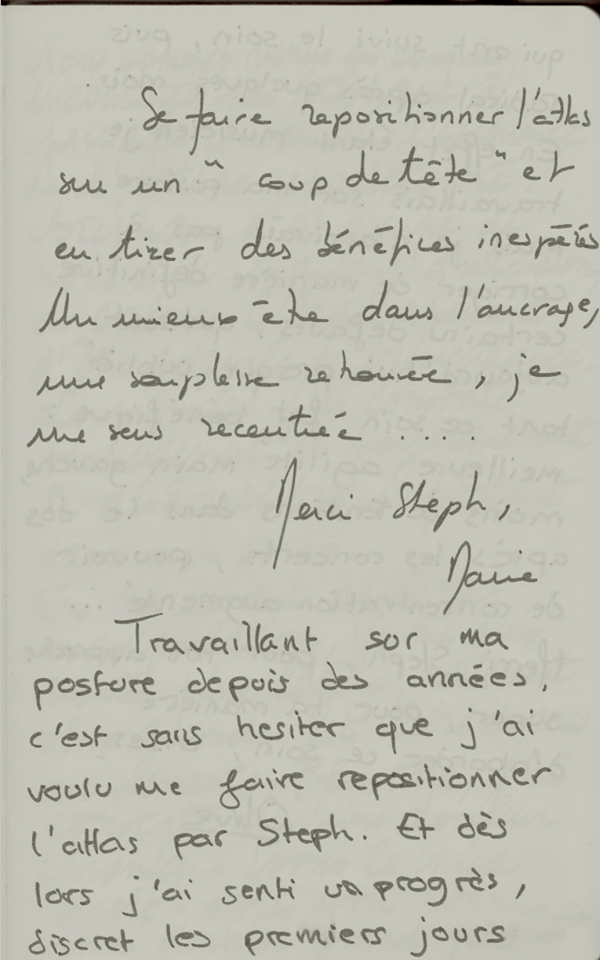 Se faire repositionner l'atlas
sur un " coup de tête " et
en tirer des bénéfices inespérés
Un mieux-être dans l'ancrage,
une souplesse retrouvée, je
me sens recentrée .....
Merci Steph,
Marie
Travaillant sur ma
posture depuis des années,
c'est sans hesiter que j'ai
voulu me faire repositionner
l'atlas par Steph. Et dès
lors j'ai senti un progrès,
discret les premiers jours